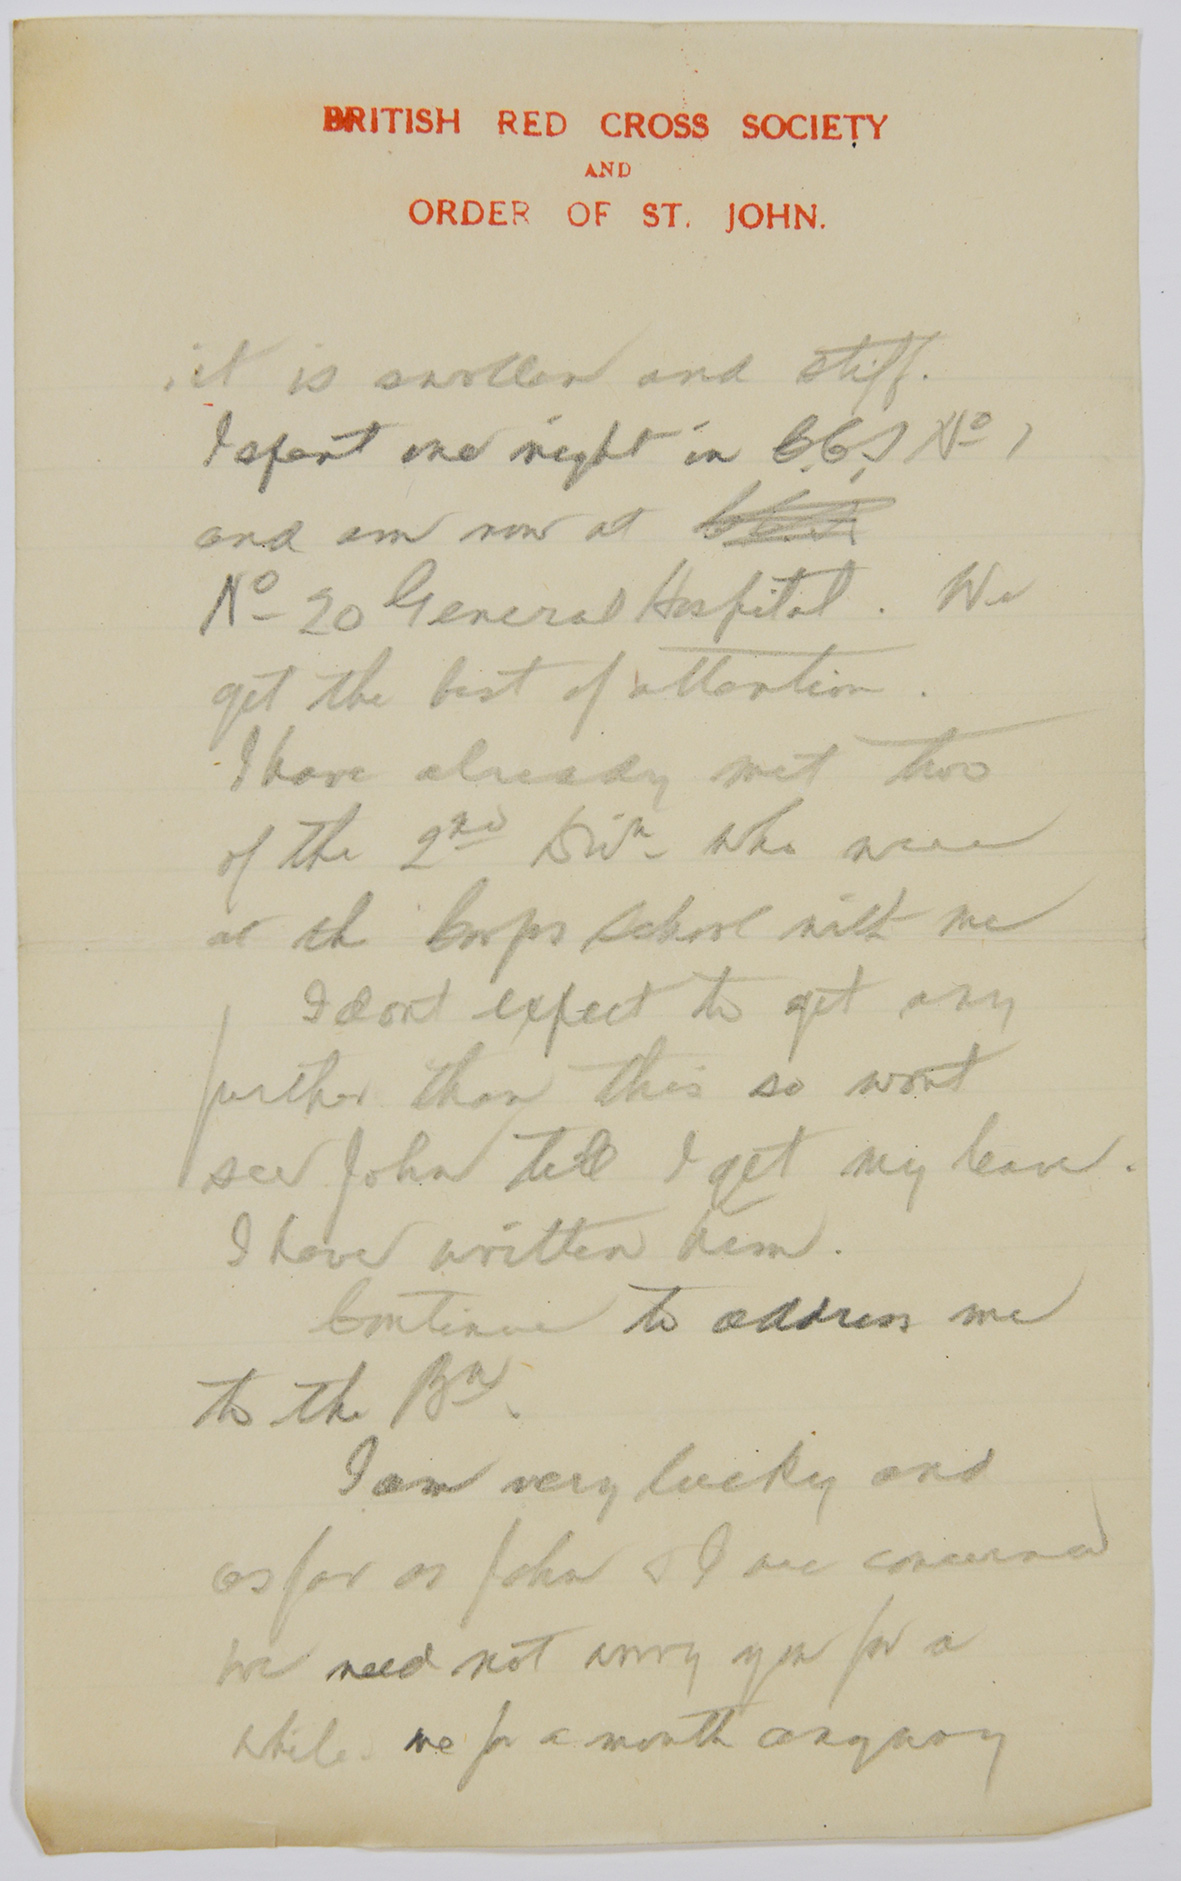 BRITISH RED CROSS SOCIETY
AND
ORDER OF ST. JOHN.
it is swollen and stiff.
I spent one night in C.C.S No 1
and am now at C.C.S.
No 20 General Hospital. We
get the best of attention.
I have already met two
of the 2nd Divn. who were
at the Corps School with me
I dont expect to get any
further than this so wont
see John till I get my leave.
I have written him.
Continue to address me
to the Bn.
I am very lucky and
as far as John & I are concerned
we need not worry you for a
while. me for a month anyway